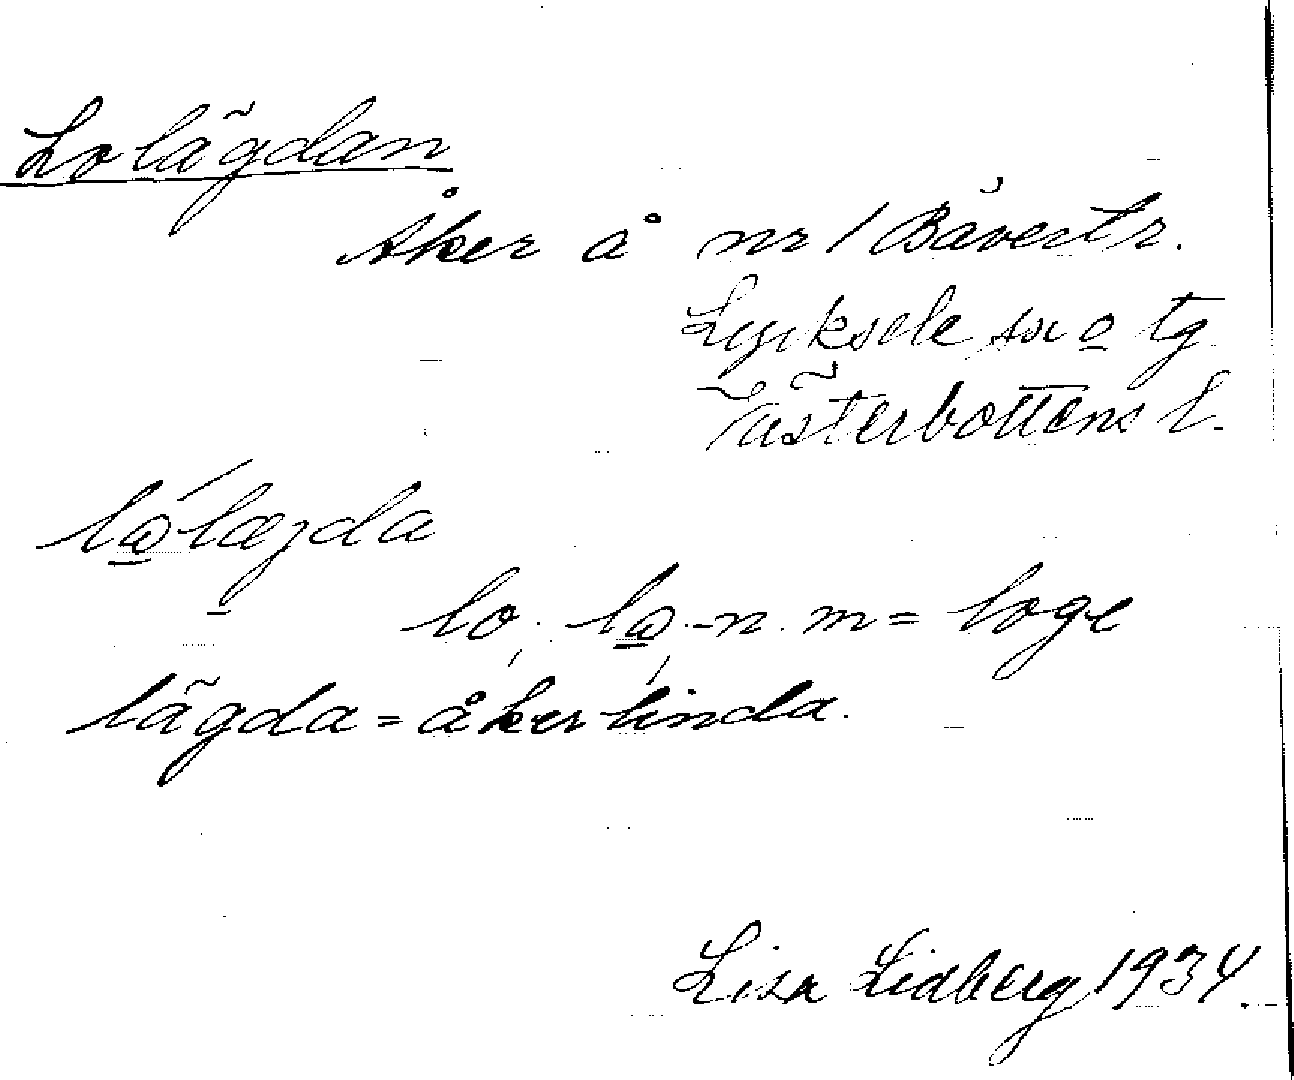 Lolägdan
Åker å nr 1 Bäverträ.
Lycksele sn o tg
Västerbottens l.
lo, -n. m = loge
lägda = åkerlinda.
Lisa Lidberg 1934.